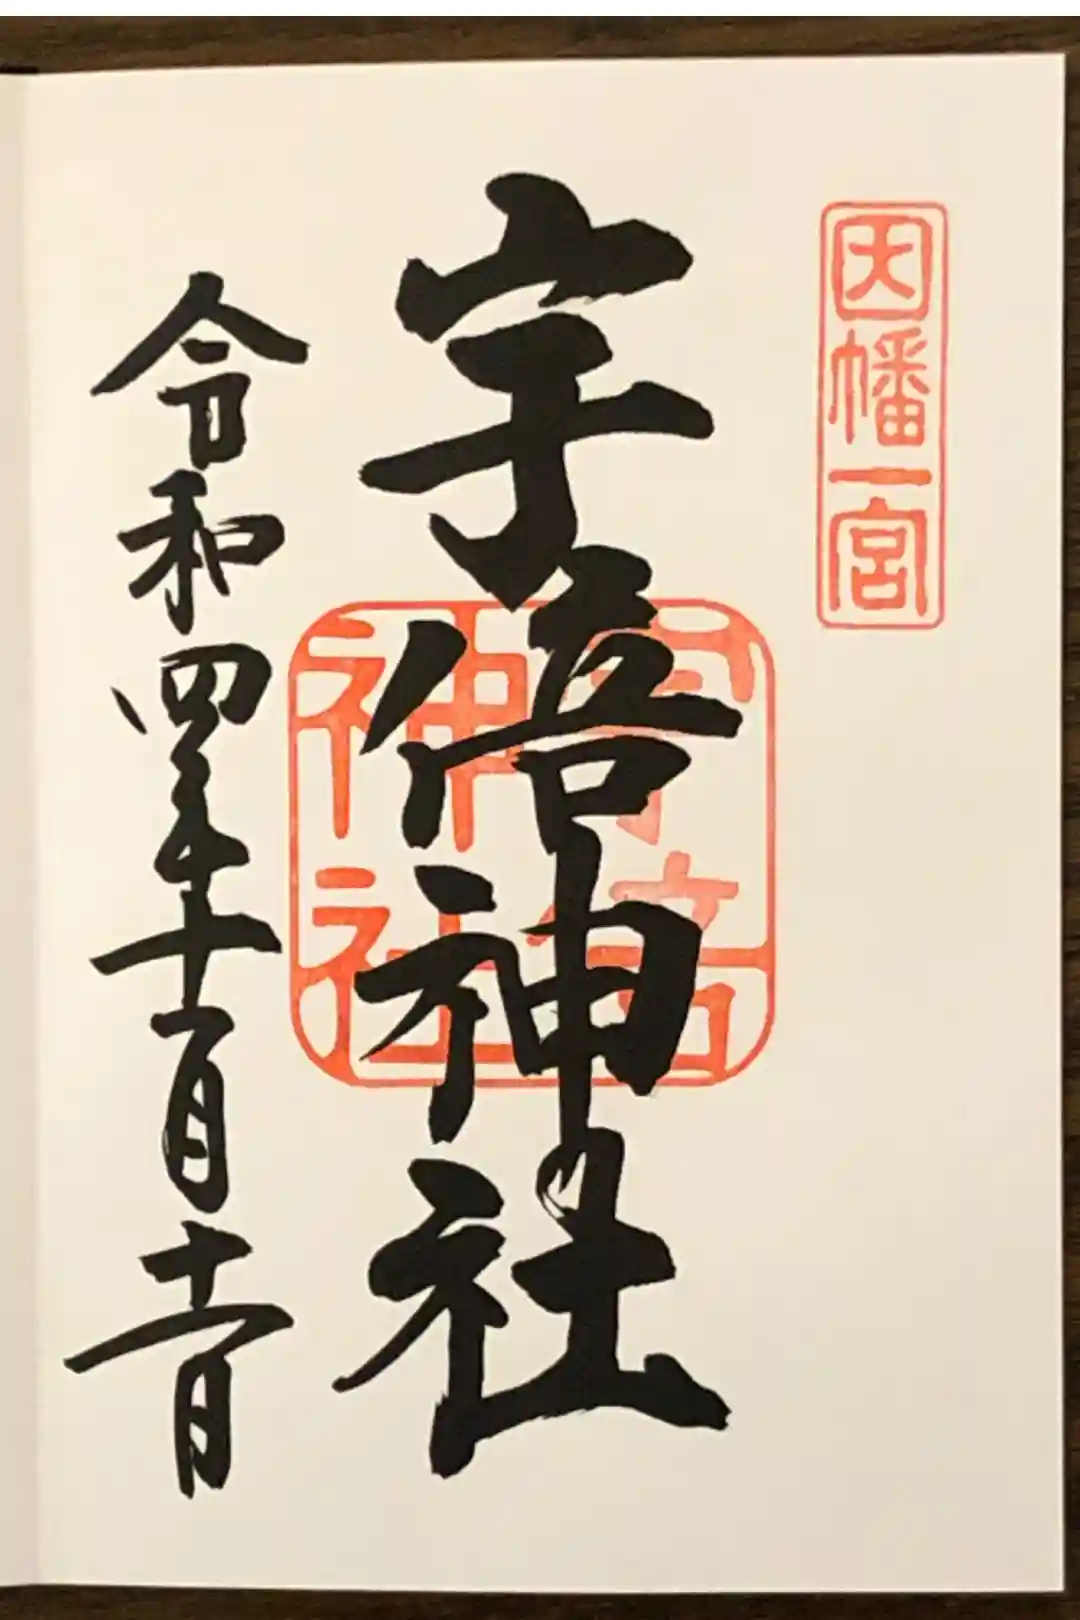 因幡一宮
宇倍神社
宇倍
神社
令和四年十一月十一日